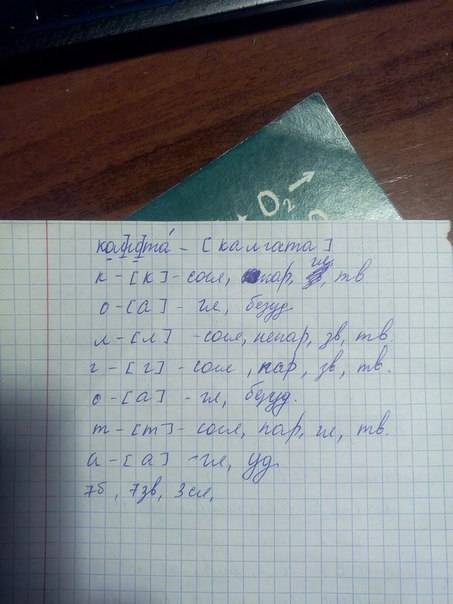 + O₂ →
колгота́ - [калгата]
к - [к] - согл, пар, гл, тв.
о - [а] - гл, безуд.
л - [л] - согл, непар, зв, тв.
г - [г] - согл, пар, зв, тв.
о - [а] - гл, безуд.
т - [т] - согл, пар, гл, тв.
а - [а] - гл, уд.
7б, 7зв, 3сл,